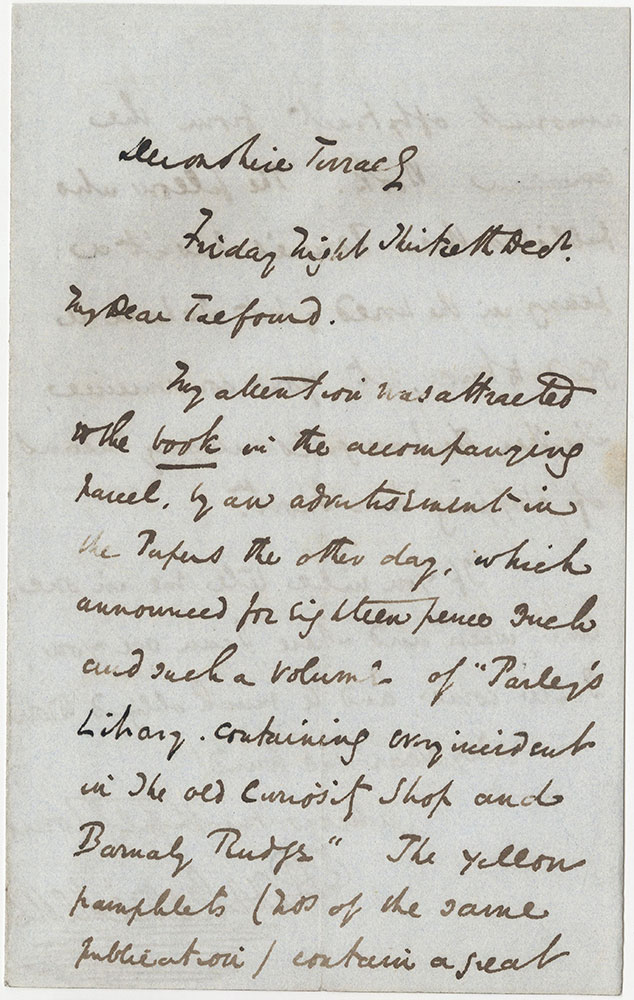 Devonshire Terrace
Friday Night Thirtieth Decr.
My Dear Talfourd.
My attention was attracted
to the book in the accompanying
parcel, by an advertisement in
the Papers the other day, which
announced for eighteen pence such
and such a volume of "Parley's
Library. containing every incident
in The old Curiosity Shop and
Barnaby Rudge" The yellow
pamphlets (nos of the same
publication) contain a great